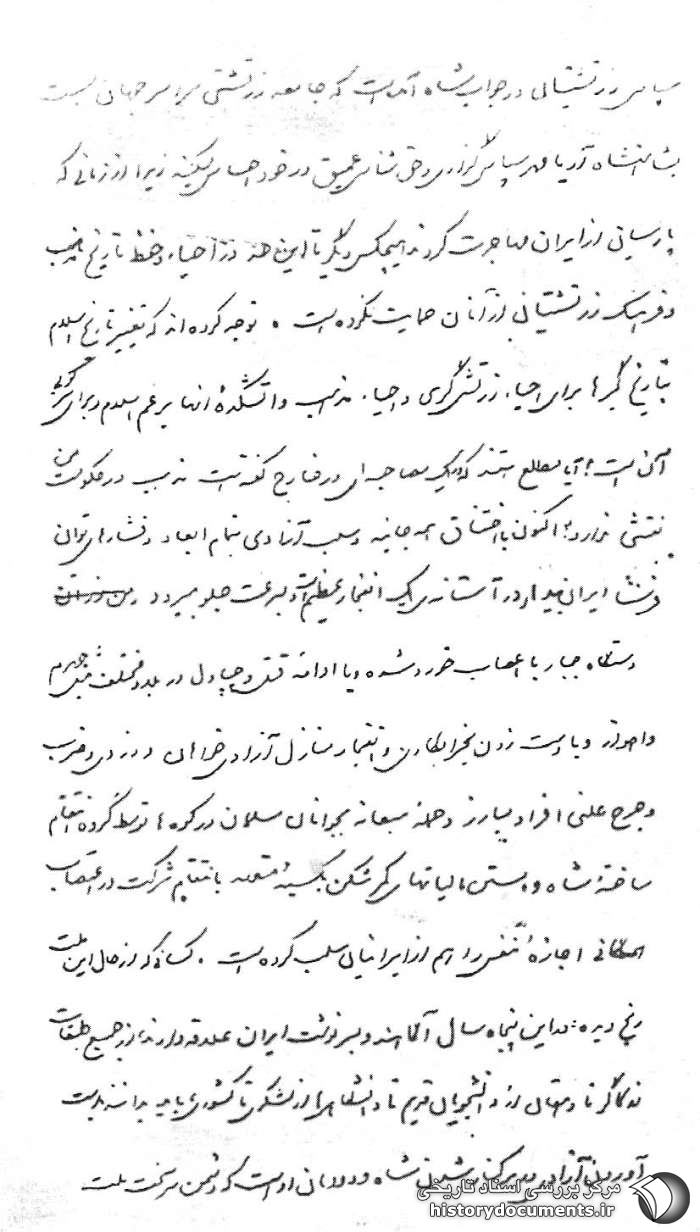 سپاس زرتشتیان در جواب شاه آمده است که جامعه زرتشتی سراسر جهان نسبت
بشاهنشاه آریامهر سپاس گزاری و حق شناسی عمیق در خود احساس میکنند زیرا از زمانی که
پارسیان از ایران مهاجرت کردند هیچکس دیگر تا این حد در احیاء و حفظ تاریخ مذهب
و فرهنگ زرتشتیانی از آنان حمایت نکرده است . توجه کرده اند که تغییر تاریخ اسلام
بتاریخ گبرها برای احیاء زرتشتی گری و احیاء مذهب و آتشکده آنها برغم اسلام و برای سرکوبی
آن است؟ آیا مطلع هستند که در یک مصاحبه ای در خارج گفته است مذهب در حکومت من
نقشی ندارد؟ اکنون با اختناق همه جانبه و سلب آزادی بتمام ابعاد و فشارهای توان
فرسا ایران بپا در آستانه یک انفجار عظیم است و بسرعت جلو میرود
دستگاه جبار با اعصاب خورد شده و با ادامه قتل و چپاول در بلاد مختلف مثل جهرم
و اهواز و با دست زدن بخرابکاری و انفجار منازل آزادی خواهان و دزدی و ضرب
و جرح علنی افراد مبارز و حمله سبعانه بجوانان مسلمان در کوه ها توسط گروه انتقام
ساختهٔ شاه و بستن مالیاتهای کمرشکن بکسبهٔ متعهد بانتقام شرکت در اعتصاب
همگانی اجازهٔ تنفس را هم از ایرانیان سلب کرده است . کسانیکه از حال این ملت
رنج دیده در این پنجاه سال آگاهند و بسرنوشت ایران علاقه دارند از جمیع طبقات
از کارگر تا دهقان از دانشجویان قدیم تا دانشگاهی از لشکری تا کشوری باید بدانند بدست
آوردن آزادی بدون برکنار شدن شاه و دودمان او است که دشمن سرسخت ملت
مرکز بررسی اسناد تاریخی
historydocuments.ir